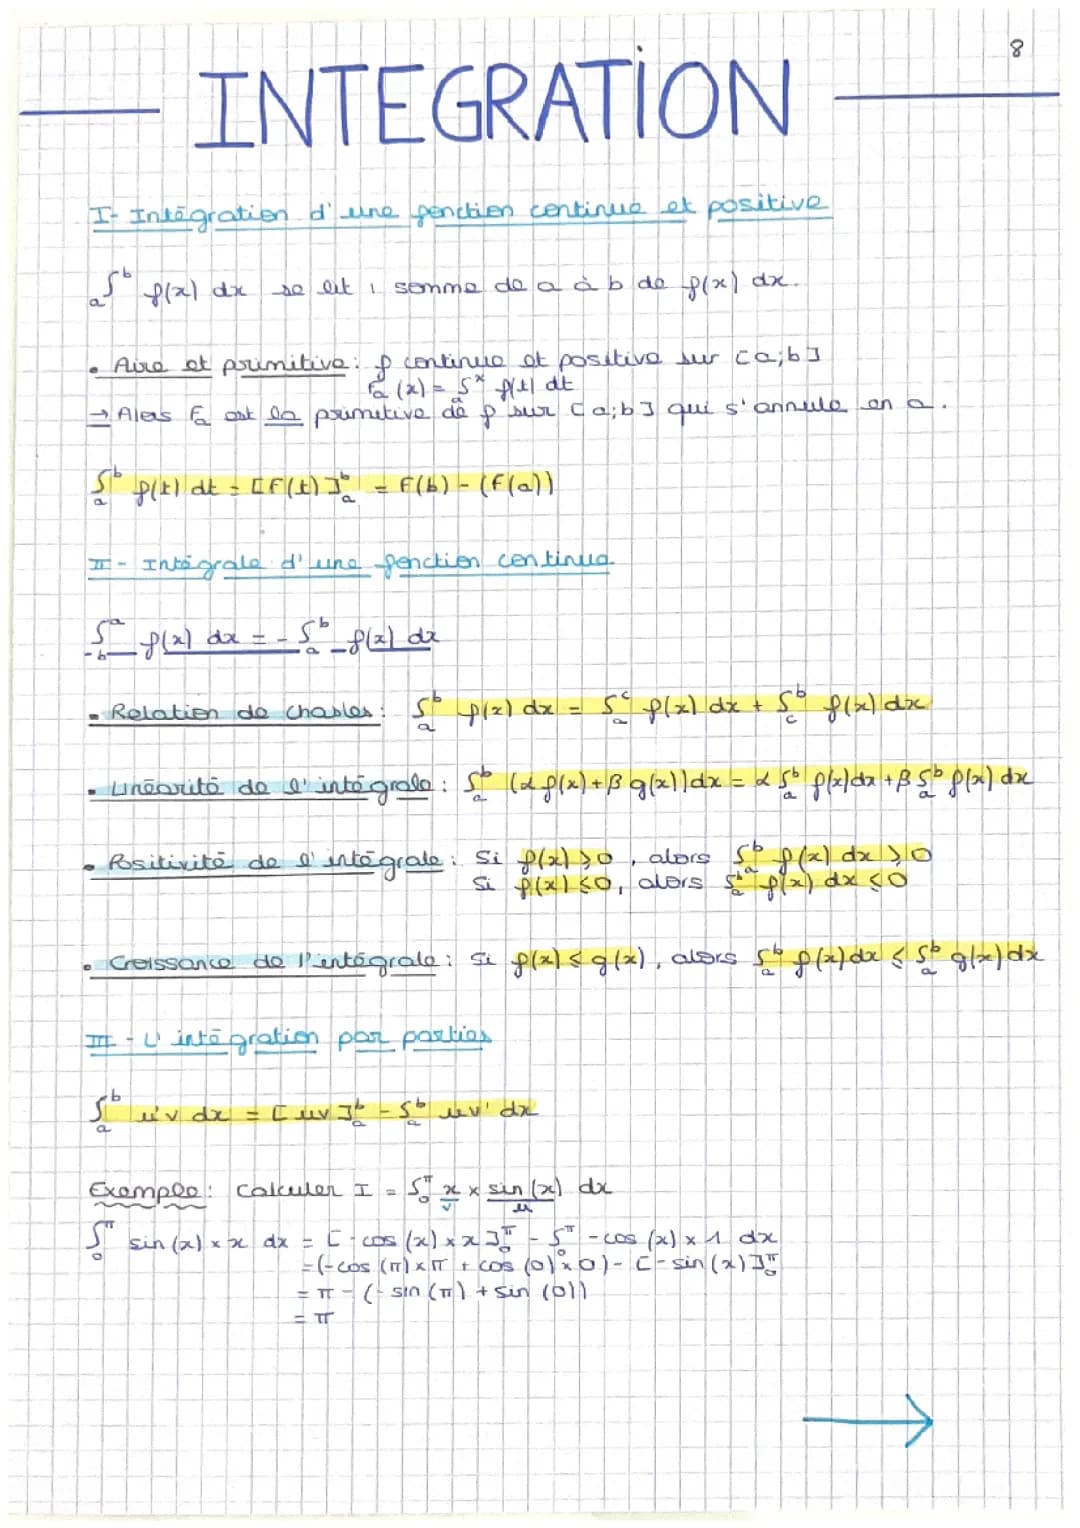 8
INTEGRATION
I- Intégration d'une fonction continue et positive
∫_a^b f(x) dx se lit : somme de a à b de f(x) dx.
• Aire et primitive : f continue et positive sur [a;b]
F_a (x) = ∫_a^x f(t) dt
→ Alors F_a est la primitive de f sur [a;b] qui s'annule en a.
∫_a^b f(t) dt = [F(t)]_a^b = F(b) - (F(a))
II - Intégrale d'une fonction continue
∫_-b^a f(x) dx = - ∫_a^b f(x) dx
• Relation de Chasles : ∫_a^b f(x) dx = ∫_a^c f(x) dx + ∫_c^b f(x) dx
• Linéarité de l'intégrale : ∫_a^b (α f(x) + β g(x)) dx = α ∫_a^b f(x) dx + β ∫_a^b f(x) dx
• Positivité de l'intégrale : Si f(x) ≥ 0, alors ∫_a^b f(x) dx ≥ 0
Si f(x) ≤ 0, alors ∫_a^b f(x) dx ≤ 0
• Croissance de l'intégrale : Si f(x) ≤ g(x), alors ∫_a^b f(x) dx ≤ ∫_a^b g(x) dx
III - L'intégration par parties
∫_a^b u'v dx = [uv]_a^b - ∫_a^b uv' dx
Exemple : Calculer I = ∫_0^π x × sin(x) dx
v u'
∫_0^π sin(x) × x dx = [-cos(x) × x]_0^π - ∫_0^π -cos(x) × 1 dx
= (-cos(π) × π + cos(0) × 0) - [-sin(x)]_0^π
= π - (-sin(π) + sin(0))
= π
→